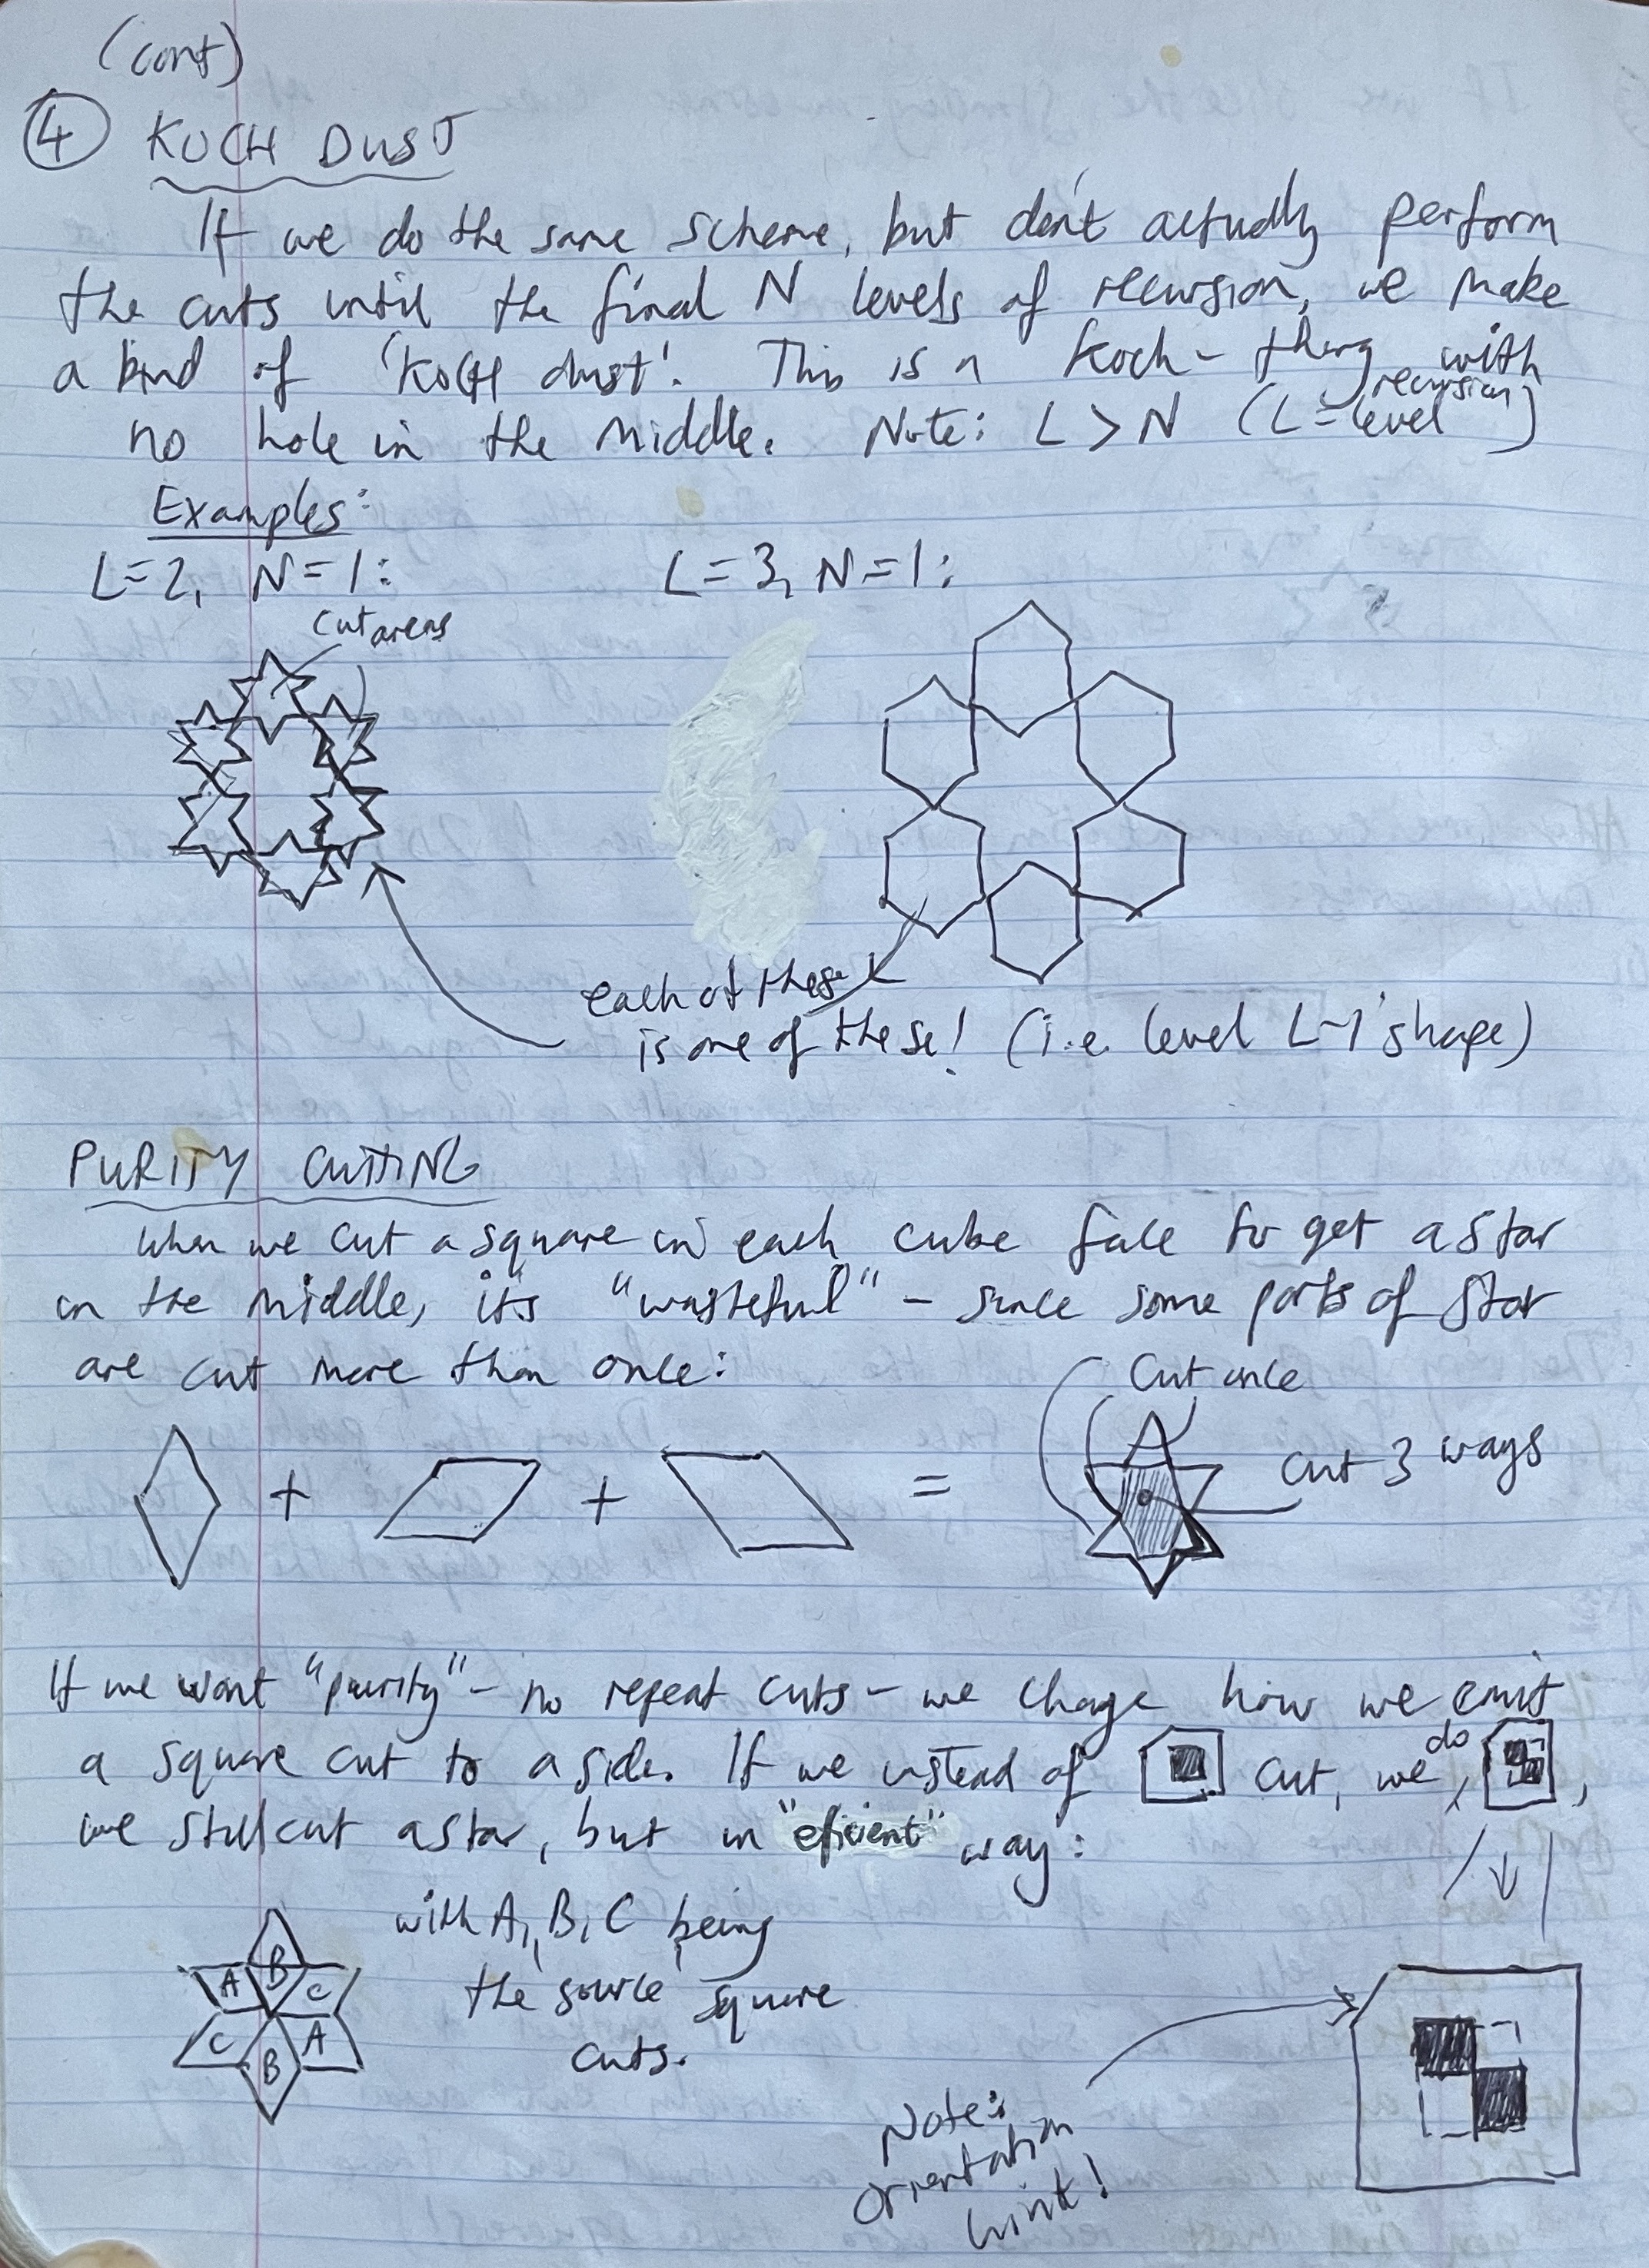 (cont)
④ KOCH DUST
If we do the same scheme, but don't actually perform
the cuts until the final N levels of recursion, we make
a kind of 'KOCH dust'. This is a Koch-thing with
no hole in the middle. Note: L > N (L = recursion level)
Examples:
L=2, N=1: L=3, N=1:
cut areas
each of these
is one of these! (i.e. level L-1 shape)
PURITY CUTTING
When we cut a square in each cube face to get a star
in the middle, it's "wasteful" - since some parts of star
are cut more than once:
Cut once
+ + = Cut 3 ways
If we want "purity" - no repeat cuts - we change how we emit
a square cut to a side. If we instead of cut, we do,
we still cut a star, but in "eficient" way:
with A, B, C being
the source square
cuts.
B
A C
C A
B
Note:
Orientation
hint!